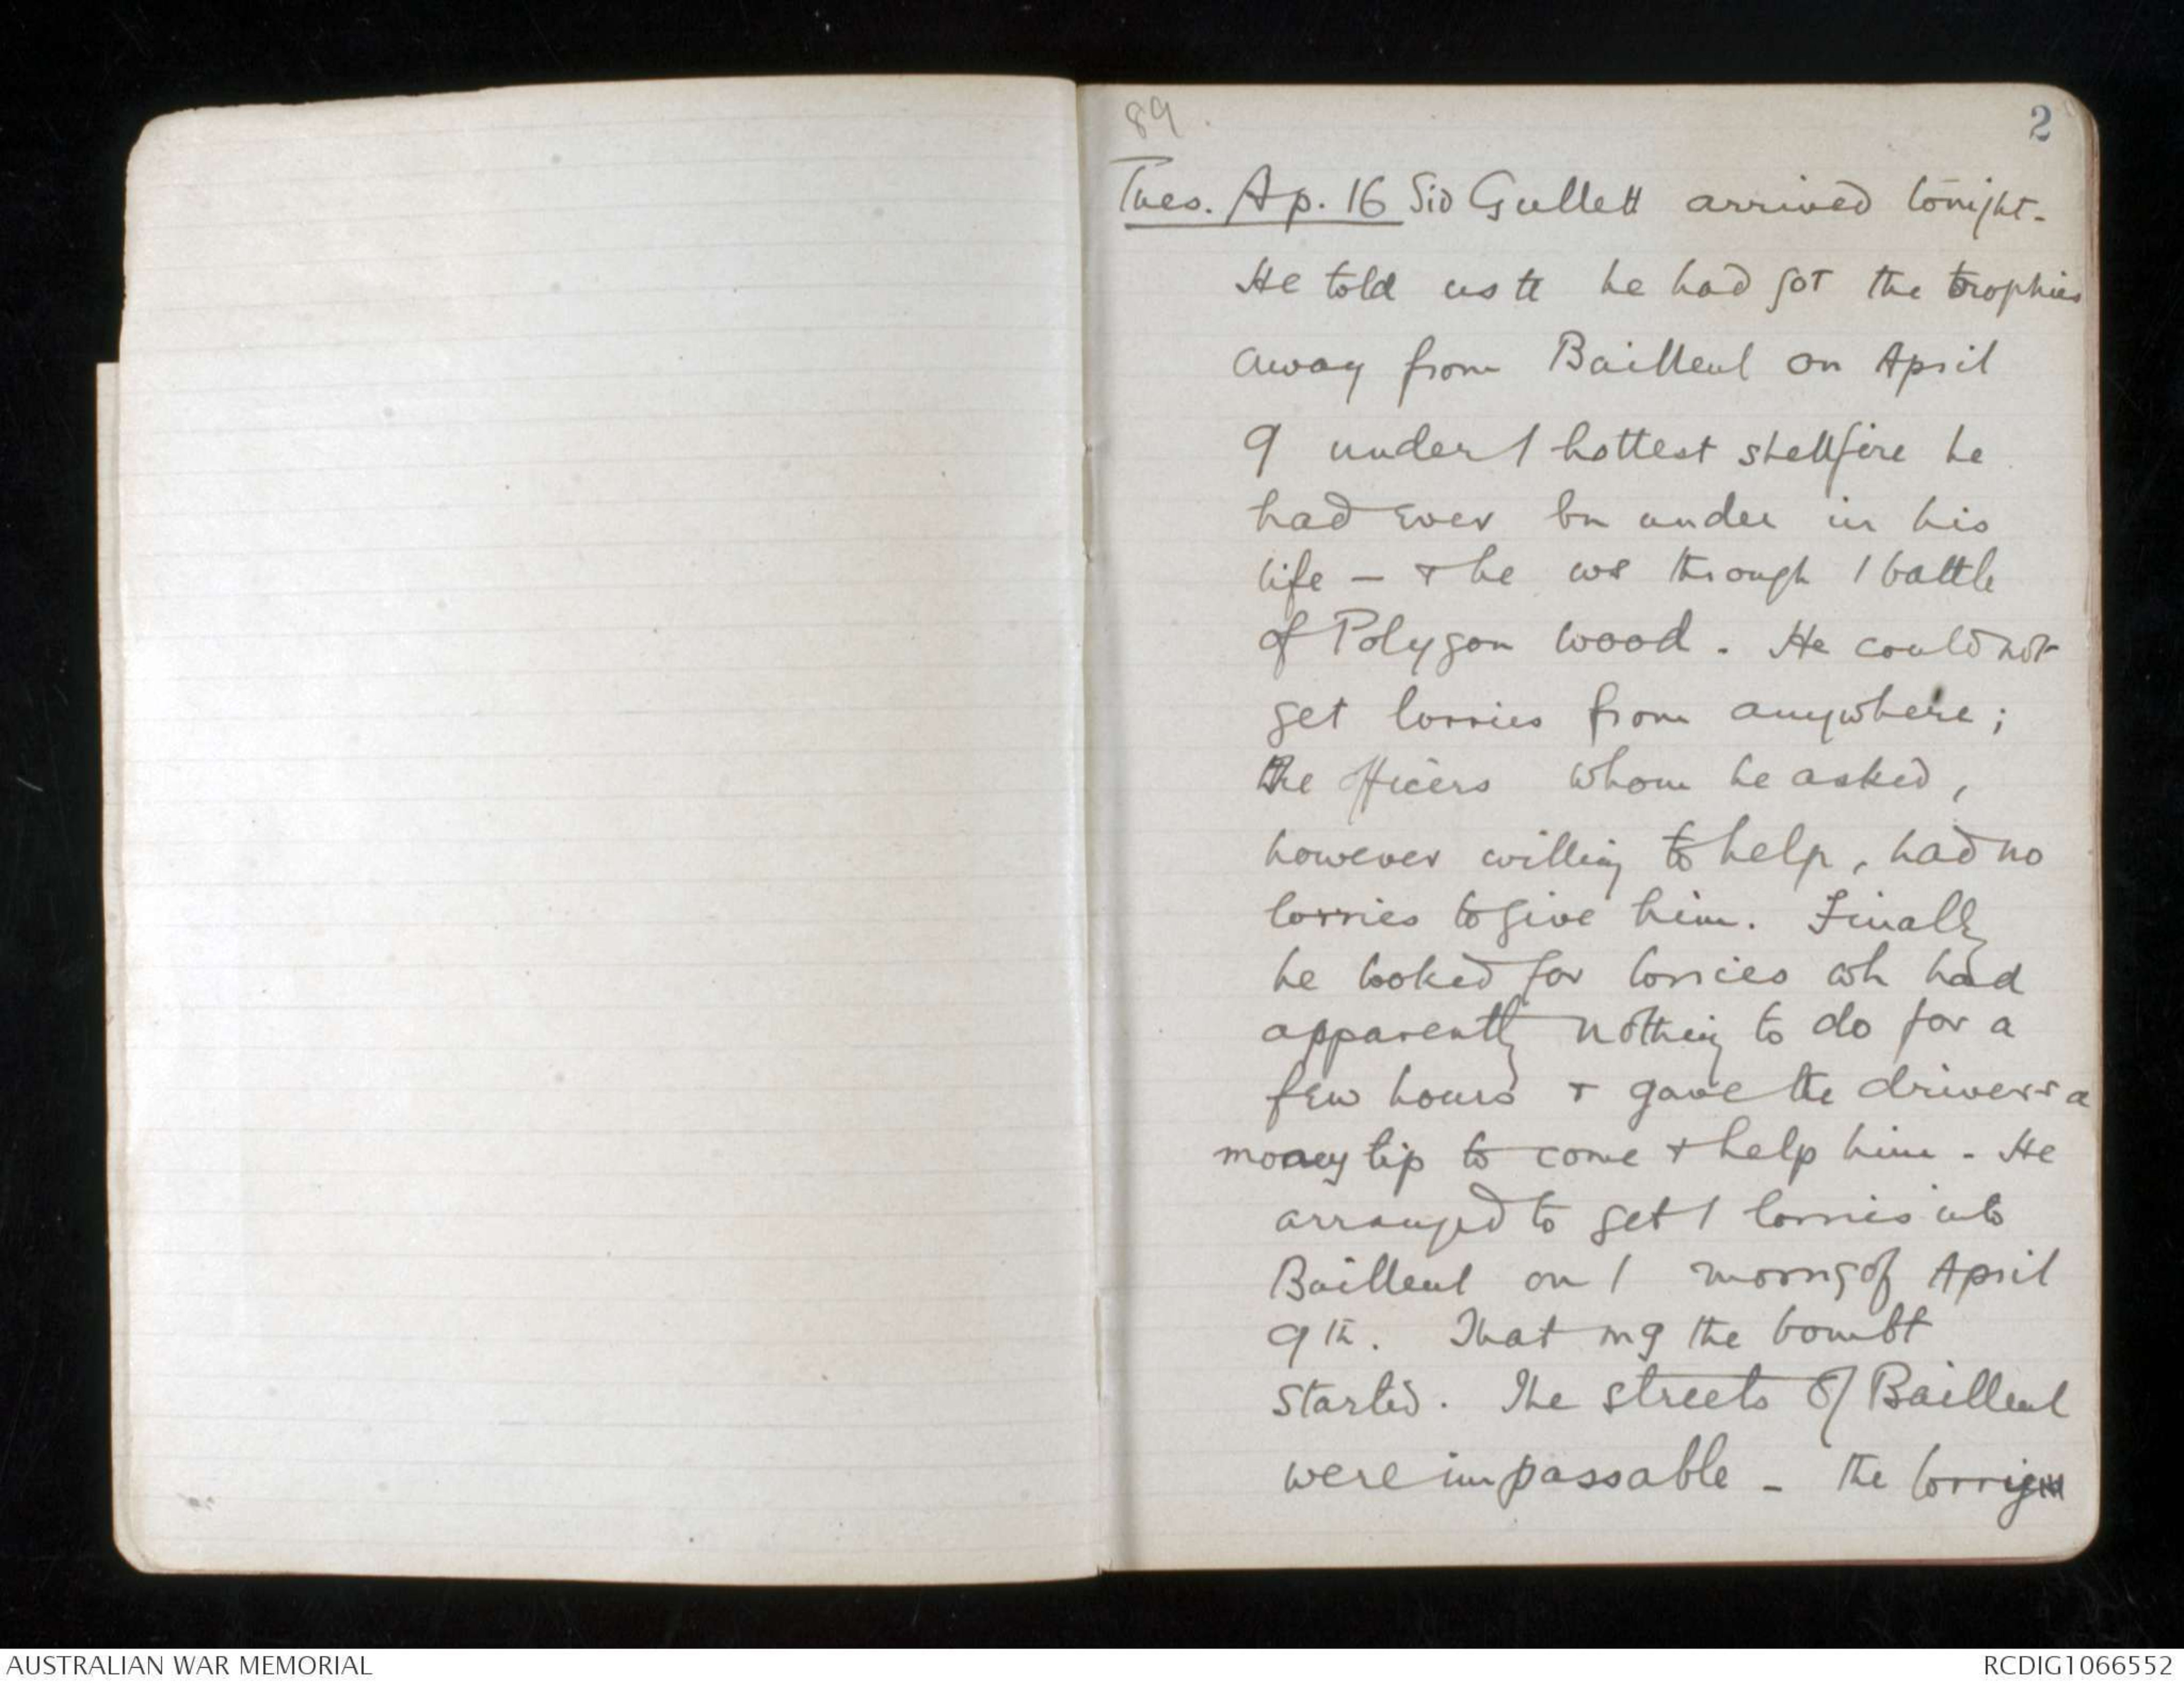 89.
2
Tues. Ap. 16 Sid Gullett arrived tonight.
He told us tt he had got the trophies
away from Bailleul on April
9 under / hottest shellfire he
had ever bn under in his
life — & he ws through / battle
of Polygon wood. He could not
get lorries from anywhere;
the officers whom he asked,
however willing to help, had no
lorries to give him. Finally
he looked for lorries wh had
apparently nothing to do for a
few hours & gave the drivers a
money tip to come & help him. He
arranged to get / lorries into
Bailleul on / morng of April
9th. That mg the bombt
started. The streets of Bailleul
were impassable - the lorries
AUSTRALIAN WAR MEMORIAL
RCDIG1066552